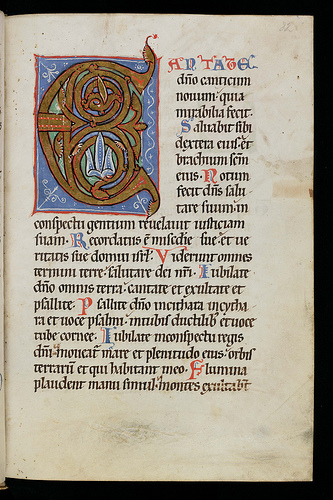 CANTATE
dño canticum
novum · quia
mirabilia fecit ·
Salvabit sibi
dextera eius · et
brachium scm̄
eius · Notum
fecit dñs salu
tare suum · in
conspectu gentium revelavit iusticiam
suam · Recordatus ē misedie sue · et ve
ritatis sue domui isrl · Viderunt omnes
termini terre · salutare dei nri · Iubilate
dño omnis terra · cantate et exultate et
psallite · Psallite dño in cithara in cytha
ra et voce psalmi · in tubis ductilib et voce
tube cornee · Iubilate in conspectu regis
dñi · moveat mare et plenitudo eius · orbis
terrarū et qui habitant in eo · Flumina
plaudent manu simul · montes exultabt